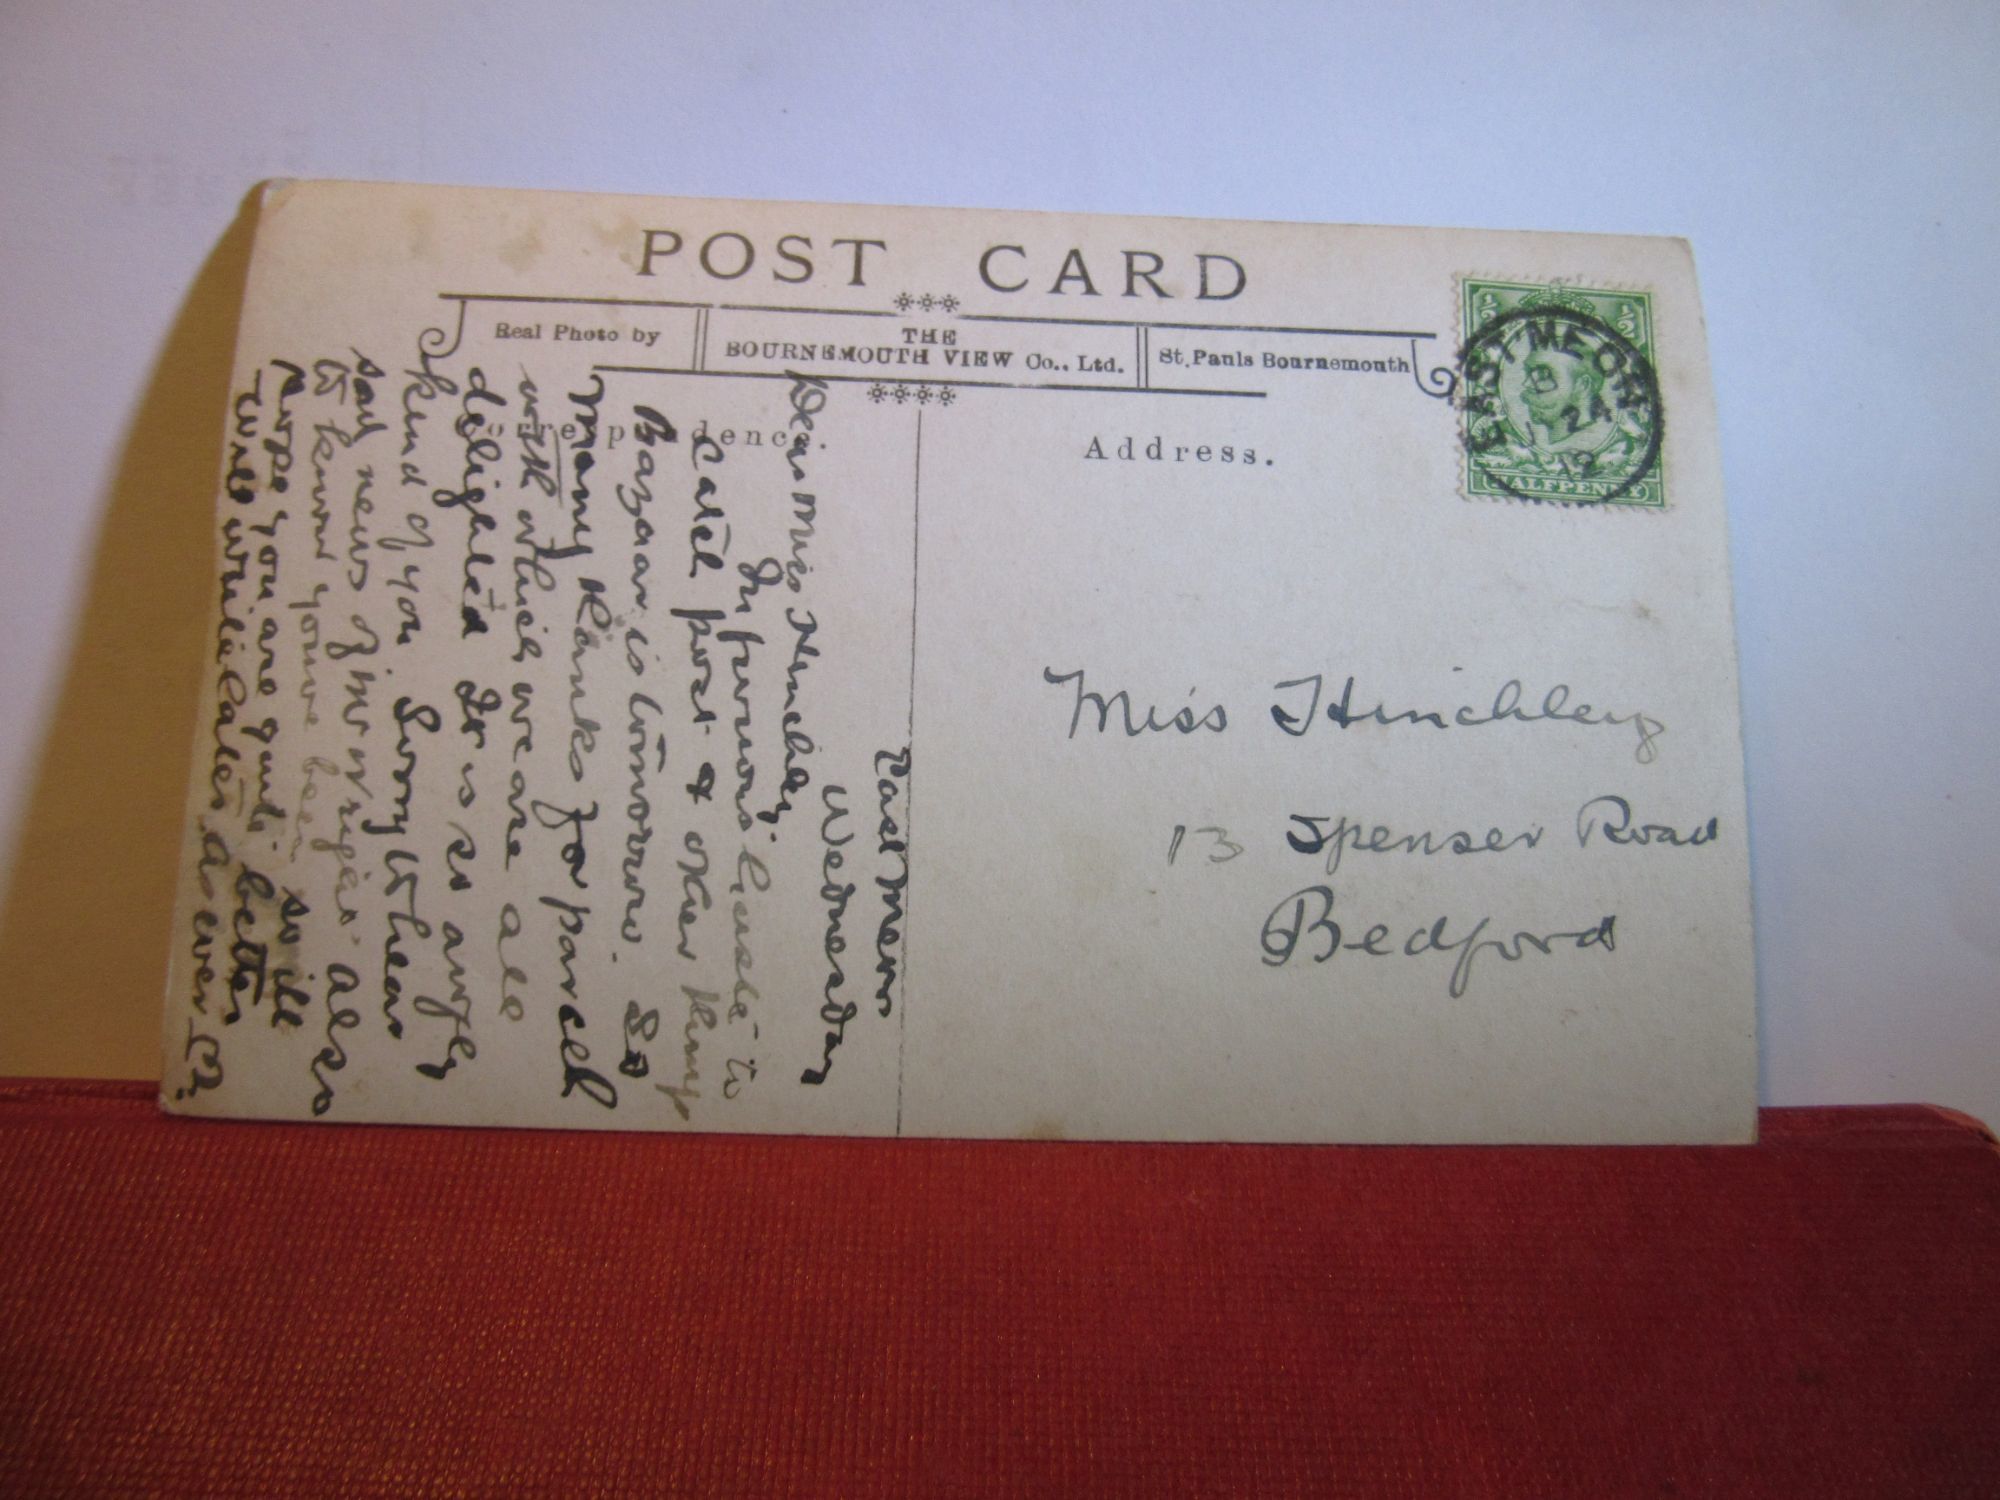 POST CARD
Real Photo by
THE
BOURNEMOUTH VIEW Co.. Ltd.
St. Pauls Bournemouth
Correspondence.
Address.
EAST MEON
B
24
12
1/2
1/2
HALFPENNY
Miss Hinchley
13 Spenser Road
Bedford
East Meon
Wednesday
Dear Miss Hinchley.
In furious haste to
catch post & other things
Bazaar is tomorrow. So
Many thanks for parcel
with which we are all
delighted It is so awfly
kind of you Sorry to hear
sad news of also
to know youve been so ill
Hope you are quite better
Will write later, as ever